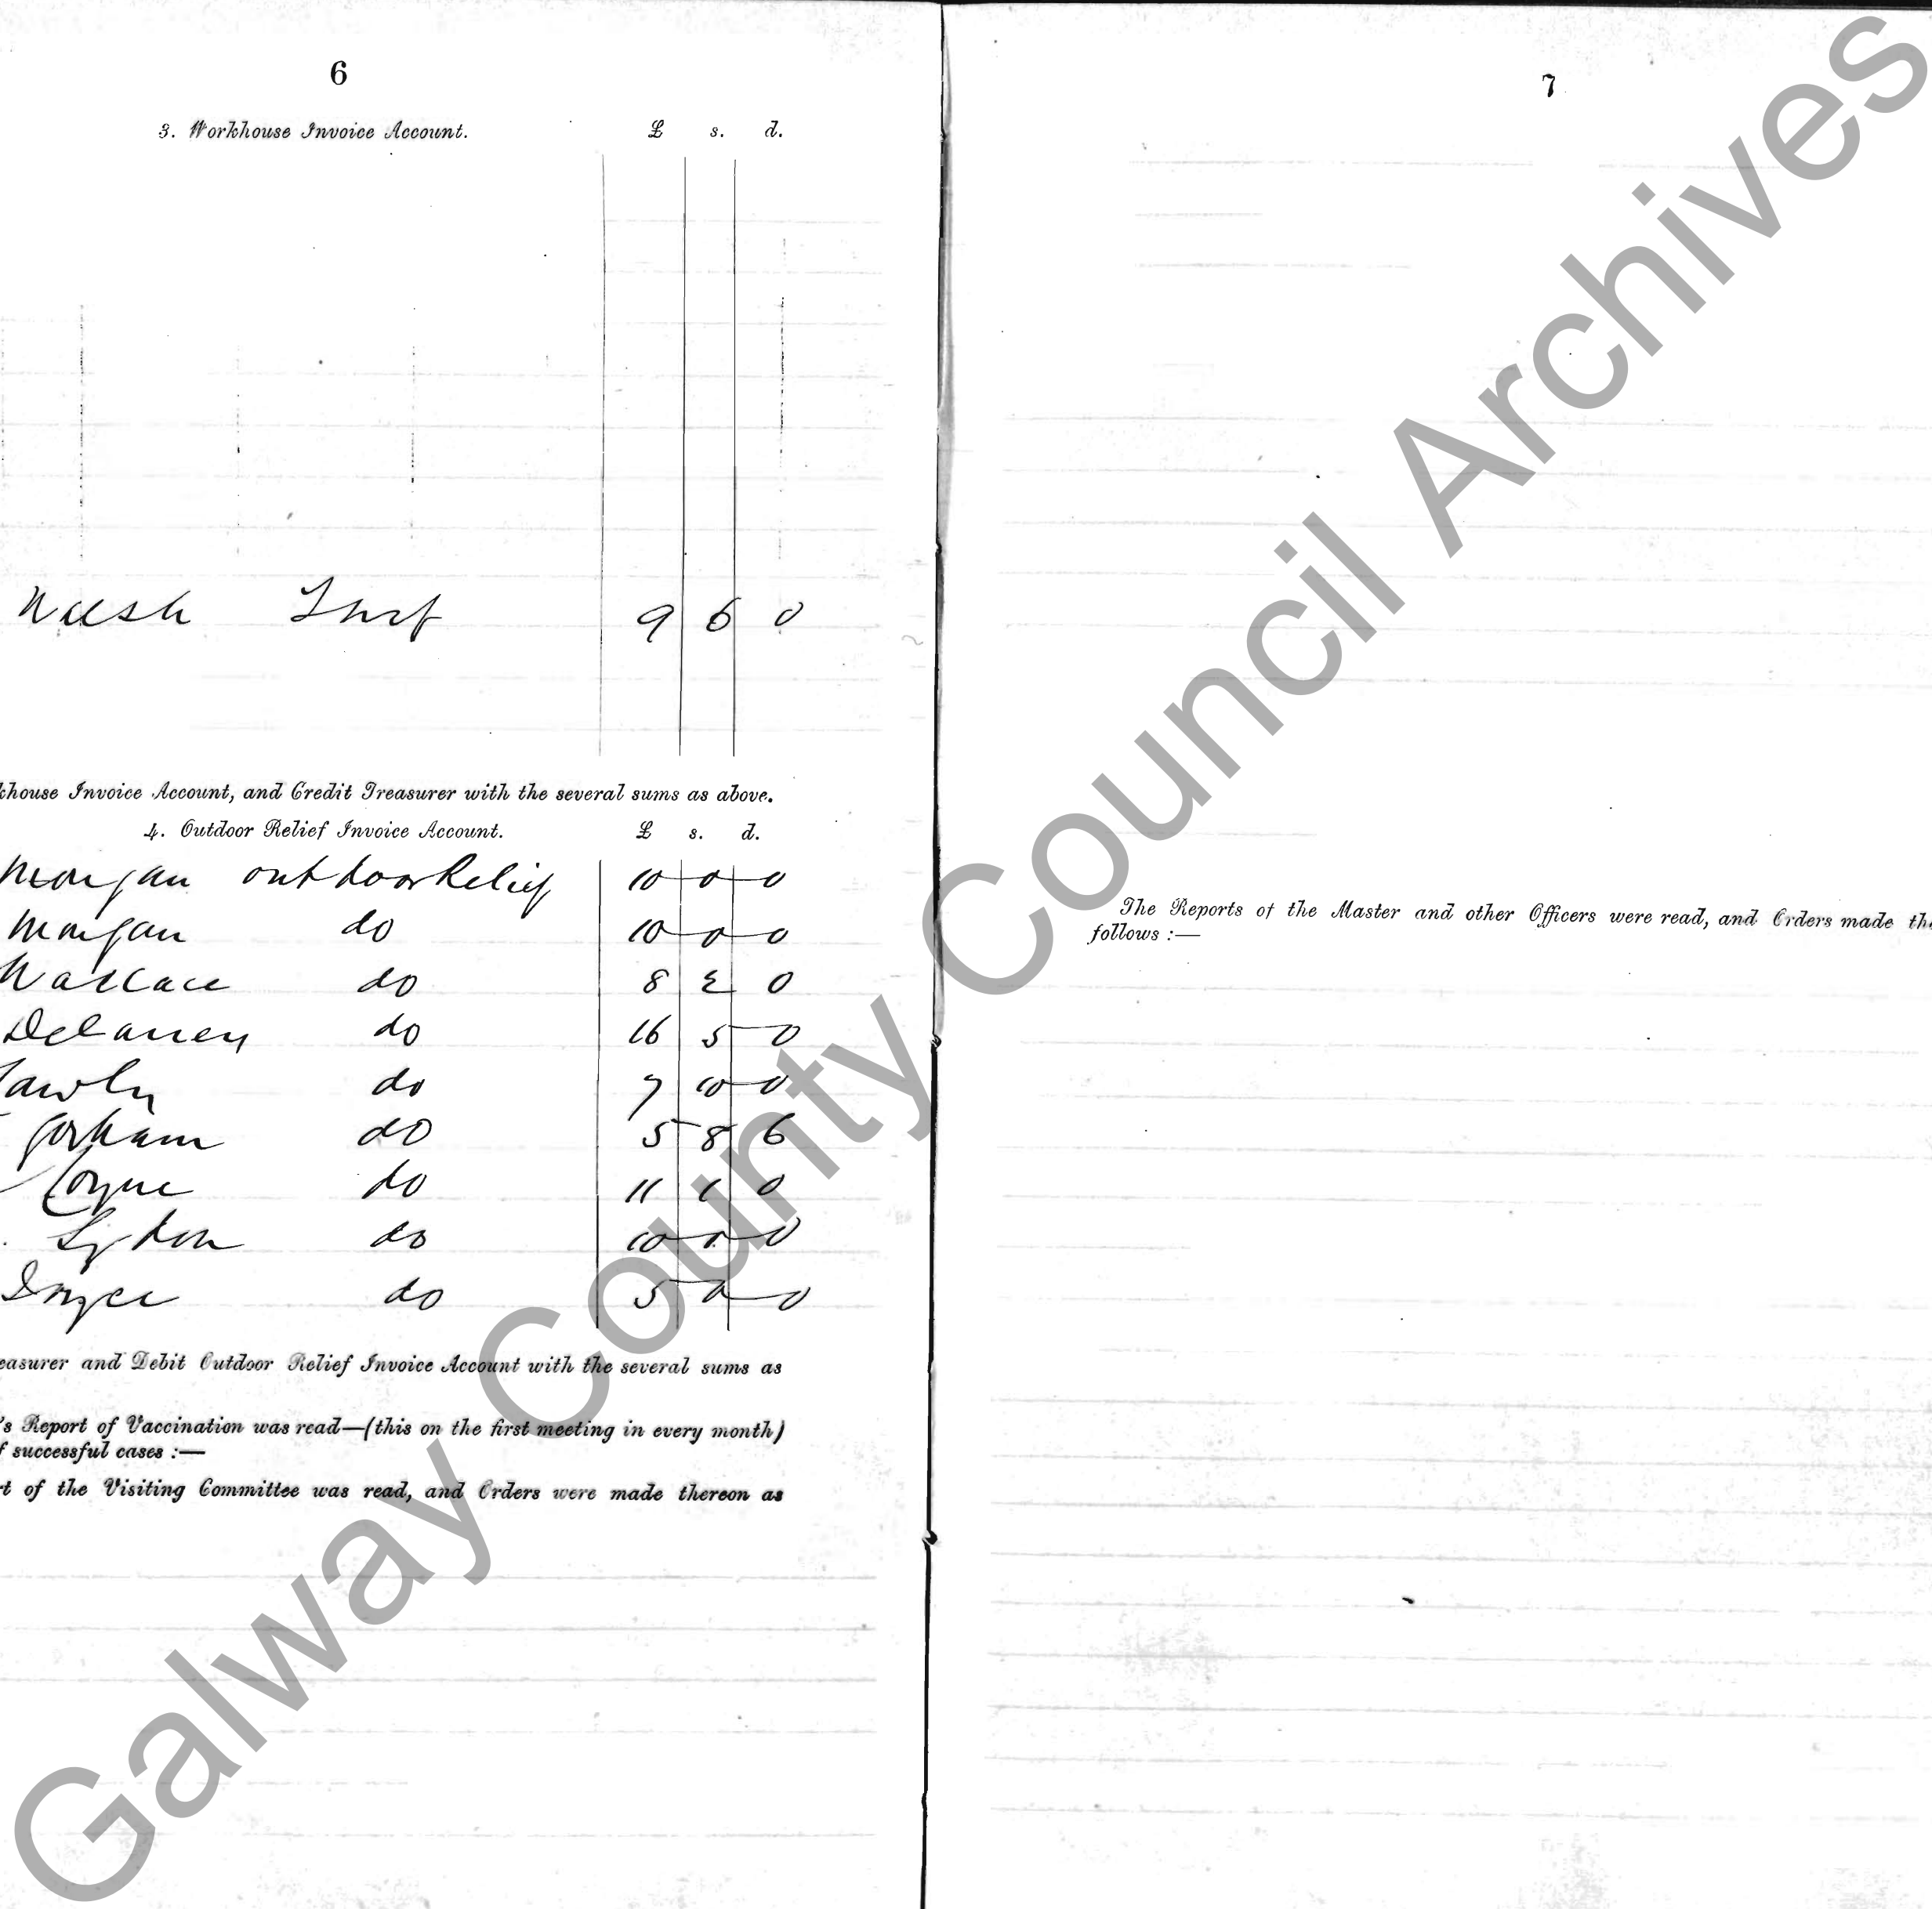 6
3. Workhouse Invoice Account. £ s. d.
Walsh Turf 9 6 0
khouse Invoice Account, and Credit Treasurer with the several sums as above.
4. Outdoor Relief Invoice Account. £ s. d.
Morgan outdoor Relief 10 0 0
Morgan do 10 0 0
Wallace do 8 2 0
Delaney do 16 5 0
do 7 10 0
Gorham do 5 8 6
Coyne do 11 1 0
Lydon do 10 0 0
Joyce do 5 0 0
easurer and Debit Outdoor Relief Invoice Account with the several sums as
's Report of Vaccination was read—(this on the first meeting in every month)
f successful cases :—
t of the Visiting Committee was read, and Orders were made thereon as
7
The Reports of the Master and other Officers were read, and Orders made the
follows :—
Galway County Council Archives